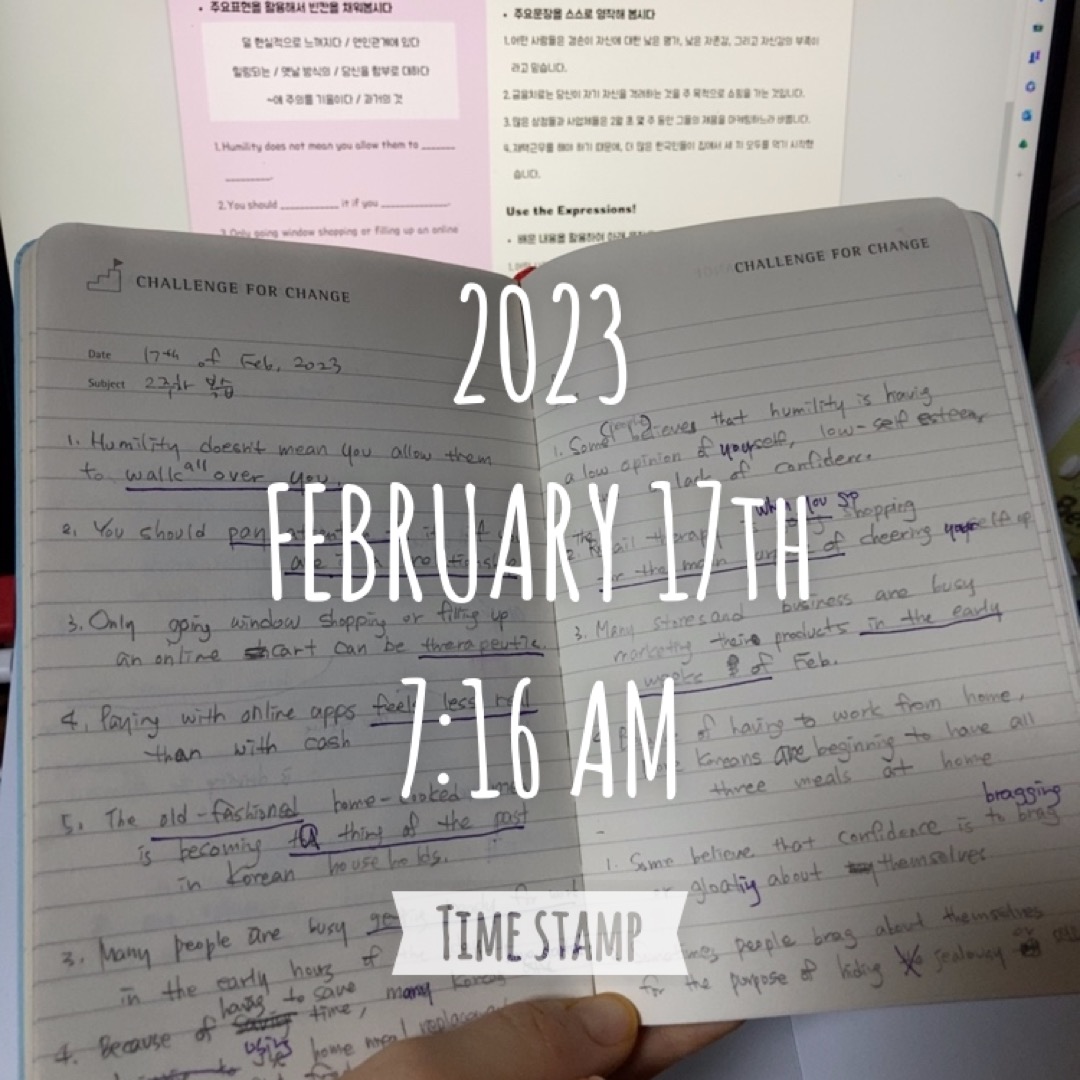 • 주요표현을 활용해서 빈칸을 채워봅시다
덜 현실적으로 느껴지다 / 연인관계에 있다
힐링되는 / 옛날 방식의 / 당신을 함부로 대하다
~에 주의를 기울이다 / 과거의 것
1.Humility does not mean you allow them to _______
_______.
2.You should _________ it if you __________.
3.Only going window shopping or filling up an online
• 주요문장을 스스로 영작해 봅시다
1.어떤 사람들은 겸손이 자신에 대한 낮은 평가, 낮은 자존감, 그리고 자신감의 부족이
라고 믿습니다.
2.금융치료는 당신이 자기 자신을 격려하는 것을 주 목적으로 쇼핑을 가는 것입니다.
3.많은 상점들과 사업체들은 2월 초 몇 주 동안 그들의 제품을 마케팅하느라 바쁩니다.
4.재택근무를 해야 하기 때문에, 더 많은 한국인들이 집에서 세 끼 모두를 먹기 시작했
습니다.
Use the Expressions!
• 배운 내용을 활용하여 아래
CHALLENGE FOR CHANGE
Date 17th of Feb, 2023
Subject 2주차 복습
1. Humility doesn't mean you allow them
to walk all over you.
2. You should pay
3. Only going window shopping or filling up
an online cart can be therapeutic.
4. Paying with online apps feels less real
than with cash
5. The old-fashioned home-cooked
is becoming a thing of the past
in Korean households.
3. Many people are busy
in the early hours of
4. Because of having to save time, many
using home meal
CHALLENGE FOR CHANGE
1. Some (people) believes that humility is having
a low opinion of yourself, low-self esteem,
lack of confidence.
2. The therapy when you shopping
for the main of cheering yourself up
3. Many stores and business are busy
marketing their products in the early
weeks of Feb.
of having to work from home,
Koreans are beginning to have all
three meals at home
1. Some believe that confidence is to brag bragging
or gloating about themselves
people brag about themselves
for the purpose of hiding jealousy or
2023
FEBRUARY 17TH
7:16 AM
TIME STAMP